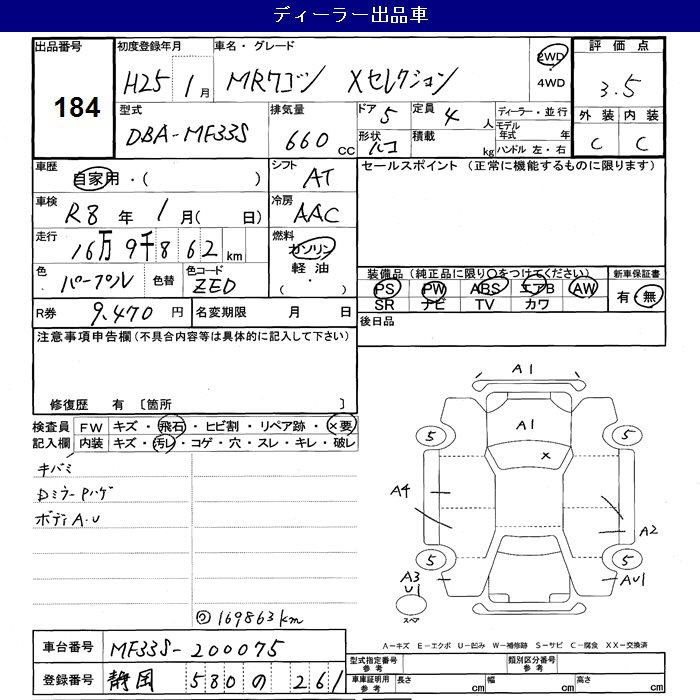 ディーラー出品車
出品番号
184
初度登録年月
H25 1月
車名・グレード
MRワゴン Xセレクション
2WD
・
4WD
評価点
3.5
外装 内装
C C
型式
DBA-MF33S
排気量
660 cc
ドア 5
形状
定員 4 人
積載 kg
ディーラー・並行
モデル年式 年
ハンドル 左・右
車歴
自家用・( )
シフト
AT
セールスポイント (正常に機能するものに限ります)
車検
R8年 1月( 日)
冷房
AAC
走行
16万9千862 km
燃料
ガソリン
軽油
( ・ )
色
パープル
色替
色コード
ZED
装備品 (純正品に限り○をつけてください)
PS PW ABS エアB AW
SR ナビ TV カワ
新車保証書
有・無
R券 9.470 円
名変期限 月 日
後日品
注意事項申告欄(不具合内容等は具体的に記入して下さい)
修復歴 有 〔箇所 〕
検査員記入欄
FW キズ・飛石・ヒビ割・リペア跡・×要
内装 キズ・汚レ・コゲ・穴・スレ・キレ・破レ
キバミ
Dミラー Pハゲ
ボディ A.U
169863km
A1
A1
x
5
5
A4
A2
5
5
A3
U1
AU1
スペア
A-キズ E-エクボ U-凹み W-補修跡 S-サビ C-腐食 XX-交換済
車台番号 MF33S-200075
登録番号 静岡 580 の 261
型式指定番号 参考
類別区分番号 参考
車庫証明用 参考
長さ cm
幅 cm
高さ cm